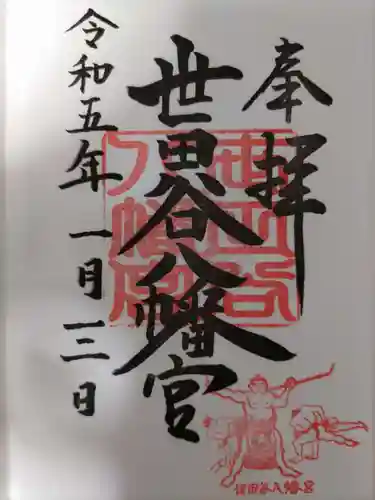 奉拝
世田谷八幡宮
令和五年一月三日
世田谷
八幡宮
世田谷八幡宮